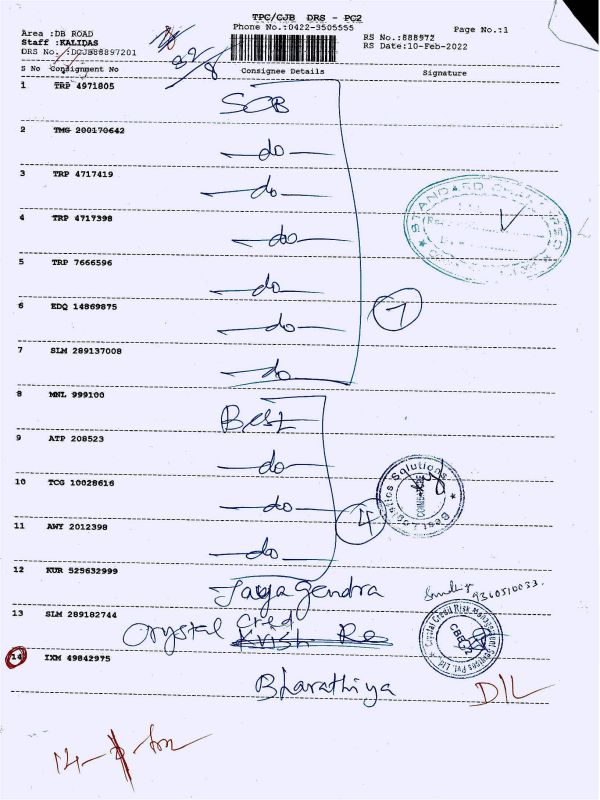 TPC/CJB DRS - PC2
Phone No.:0422-9505555
Page No.:1
Area :DB ROAD
Staff :KALIDAS
DRS No. :DCJB88897201
RS No.:888972
RS Date:10-Feb-2022
S No Consignment No Consignee Details Signature
1 TRP 4971805 SCB
2 TMG 200170642 do
3 TRP 4717419 do
4 TRP 4717398 do
STANDARD CHARTERED
5 TRP 7666596 do
6 EDQ 14869875 do
7
7 SLM 289137008 do
8 MNL 999100 Best
9 ATP 208523 do
10 TCG 10028616 do
Best Logistics Solutions
11 AWY 2012398 do
4
12 KUR 525632999
9360510033
13 SLM 289182744 Crystal Cred
Credit Risk Management Services Pvt. Ltd.
14 IXM 49842975 Bharathiya